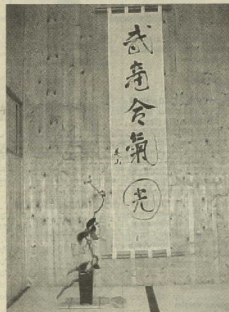 武産合氣
光